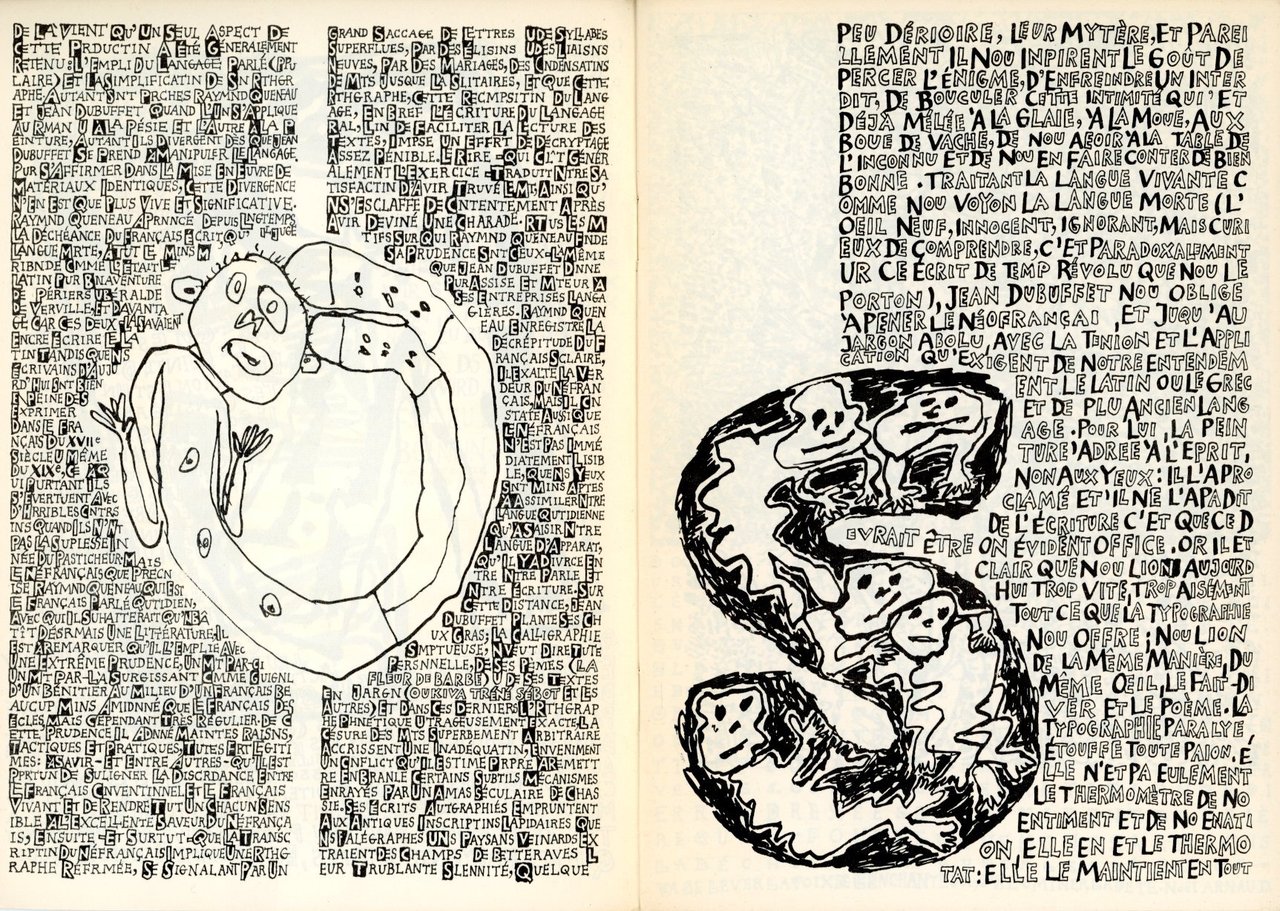 DE LA VIENT QU'UN SEUL ASPECT DE
CETTE PRDUCTIN A ÉTÉ GÉNÉRALEMENT
RETENU: L'EMPLI DU LANGAGE PARLÉ (PPU
LAIRE) ET LA SIMPLIFICATIN DE SN RTHGR
APHE. AUTANT SNT PRCHES RAYMND QUENEAU
ET JEAN DUBUFFET QUAND L'UN S'APPLIQUE
AU RMAN U A LA PÉSIE ET L'AUTRE A LA P
EINTURE, AUTANT ILS DIVERGENT DÈS QUE JEAN
DUBUFFET SE PREND A MANIPULER LE LANGAGE.
PUR S'AFFIRMER DANS LA MISE EN ŒUVRE DE
MATÉRIAUX IDENTIQUES, CETTE DIVERGENCE
N'EN EST QUE PLUS VIVE ET SIGNIFICATIVE.
RAYMND QUENEAU A PRNNCÉ DEPUIS LNGTEMPS
LA DÉCHÉANCE DU FRANÇAIS ÉCRIT QU' IL JUGE
LANGUE MRTE, A TUT LE MINS M
RIBNDE CMME L'ÉTAIT LE
LATIN PUR BNAVENTURE
DE PÉRIERS U BÉRALDE
DE VERVILLE, ET DAVANTA
GE CAR CES DEUX-LA SAVAIENT
ENCRE ÉCRIRE LE LA
TIN TANDIS QUE NS
ÉCRIVAINS D'AUJU
RD'HUI SNT BIEN
EN PEINE DE S
EXPRIMER
DANS LE FRA
NÇAIS DU XVIIe
SIÈCLE U MÊME
DU XIXe. CE A Q
UI PURTANT ILS
S'ÉVERTUENT AVEC
D'HRRIBLES CNTRS
INS QUAND ILS N'NT
PAS LA SUPLESSE IN
NÉE DU PASTICHEUR. MAIS
LE NÉFRANÇAIS QUE PRÉCN
ISE RAYMND QUENEAU QUI EST
LE FRANÇAIS PARLÉ QUTIDIEN,
AVEC QUI IL SUHAITERAIT QU'N BÂ
TÎT DÉSRMAIS UNE LITTÉRATURE, IL
EST A REMARQUER QU'IL L'EMPLIE AVEC
UNE EXTRÊME PRUDENCE, UN MT PAR-CI
UN MT PAR-LA SURGISSANT CMME GUIGNL
D'UN BÉNITIER AU MILIEU D'UN FRANÇAIS BE
AUCUP MINS AMIDNNÉ QUE LE FRANÇAIS DES
ÉCLES, MAIS CEPENDANT TRÈS RÉGULIER. DE C
ETTE PRUDENCE IL A DNNÉ MAINTES RAISNS,
TACTIQUES ET PRATIQUES, TUTES FRT LÉGITI
MES: A SAVIR - ET ENTRE AUTRES - QU'IL EST
PPRTUN DE SULIGNER LA DISCRDANCE ENTRE
LE FRANÇAIS CNVENTINNEL ET LE FRANÇAIS
VIVANT ET DE RENDRE TUT UN CHACUN SENS
IBLE A L'EXCELLENTE SAVEUR DU NÉFRANÇA
IS; ENSUITE - ET SURTUT - QUE LA TRANSC
RIPTIN DU NÉFRANÇAIS IMPLIQUE UNE RTHG
RAPHE RÉFRMÉE, SE SIGNALANT PAR UN
GRAND SACCAGE DE LETTRES U DE SYLLABES
SUPERFLUES, PAR DES ÉLISINS U DES LIAISNS
NEUVES, PAR DES MARIAGES, DES CNDENSATINS
DE MTS JUSQUE LA SLITAIRES, ET QUE CETTE
RTHGRAPHE, CETTE RECMPSITIN DU LANG
AGE, EN BREF L'ÉCRITURE DU LANGAGE
RAL, LIN DE FACILITER LA LECTURE DES
TEXTES, IMPSE UN EFFRT DE DÉCRYPTAGE
ASSEZ PÉNIBLE. LE RIRE - QUI CI T GÉNÉR
ALEMENT L'EXERCICE - TRADUIT NTRE SA
TISFACTIN D'AVIR TRUVÉ LE MT: AINSI QU'
N S'ESCLAFFE DE CNTENTEMENT APRÈS
AVIR DEVINÉ UNE CHARADE. R TUS LES M
TIFS SUR QUI RAYMND QUENEAU FNDE
SA PRUDENCE SNT CEUX-LA MÊME
QUE JEAN DUBUFFET DNNE
PUR ASSISE ET MTEUR A
SES ENTREPRISES LANGA
GIÈRES. RAYMND QUEN
EAU ENREGISTRE LA
DÉCRÉPITUDE DU F
RANÇAIS SCLAIRE,
IL EXALTE LA VER
DEUR DU NÉFRAN
ÇAIS, MAIS IL CN
STATE AUSSI QUE
LE NÉFRANÇAIS
N'EST PAS IMMÉ
DIATEMENT LISIB
LE, QUE NS YEUX
SNT MINS APTES
A ASSIMILER NTRE
LANGUE QUTIDIENNE
QU'A SAISIR NTRE
LANGUE D'APPARAT,
QU'IL Y A DIVRCE EN
TRE NTRE PARLE ET
NTRE ÉCRITURE. SUR
CETTE DISTANCE, JEAN
DUBUFFET PLANTE SES CH
UX GRAS; LA CALLIGRAPHIE
SMPTUEUSE, N VEUT DIRE TUTE
PERSNNELLE, DE SES PÈMES (LA
FLEUR DE BARBE) U DE SES TEXTES
EN JARGN (OUKIVA TRÉNÉ SÉBOT ET LES
AUTRES) ET DANS CES DERNIERS L'RTHGRAP
HE PHNÉTIQUE UTRAGEUSEMENT EXACTE, LA
CÉSURE DES MTS SUPERBEMENT ARBITRAIRE
ACCRISSENT UNE INADÉQUATIN, ENVENIMENT
UN CNFLICT QU'IL ESTIME PRPRE A REMETT
RE EN BRANLE CERTAINS SUBTILS MÉCANISMES
ENRAYÉS PAR UN AMAS SÉCULAIRE DE CHAS
SIE. SES ÉCRITS AUTGRAPHIÉS EMPRUNTENT
AUX ANTIQUES INSCRIPTINS LAPIDAIRES QUE
NS PALÉGRAPHES U NS PAYSANS VEINARDS EX
TRAIENT DES CHAMPS DE BETTERAVES L
EUR TRUBLANTE SLENNITÉ, QUELQUE
PEU DÉRIOIRE, LEUR MYTÈRE, ET PAREI
LLEMENT IL NOU INPIRENT LE GOÛT DE
PERCER L'ÉNIGME, D'ENFREINDRE UN INTER
DIT, DE BOUCULER CETTE INTIMITÉ QUI 'ET
DÉJÀ MÊLÉE 'A LA GLAIE, 'A LA MOUE, AUX
BOUE DE VACHE, DE NOU AEOIR 'A LA TABLE DE
L'INCONNU ET DE NOU EN FAIRE CONTER DE BIEN
BONNE. TRAITANT LA LANGUE VIVANTE C
OMME NOU VOYON LA LANGUE MORTE (L'
OEIL NEUF, INNOCENT, IGNORANT, MAIS CURI
EUX DE COMPRENDRE, C'ET PARADOXALEMENT
UR CE ÉCRIT DE TEMP RÉVOLU QUE NOU LE
PORTON), JEAN DUBUFFET NOU OBLIGE
'A PENER LE NÉOFRANÇAI, ET JUQU'AU
JARGON ABOLU, AVEC LA TENION ET L'APPLI
CATION QU'EXIGENT DE NOTRE ENTENDEM
ENT LE LATIN OU LE GREC
ET DE PLU ANCIEN LANG
AGE. POUR LUI, LA PEIN
TURE 'ADREE 'A L'EPRIT,
NON AUX YEUX: IL L'A PRO
CLAMÉ ET 'IL NE L'A PA DIT
DE L'ÉCRITURE C'ET QUE CE D
EVRAIT ÊTRE ON ÉVIDENT OFFICE. OR IL ET
CLAIR QUE NOU LION AUJOURD
HUI TROP VITE, TROP AISÉMENT
TOUT CE QUE LA TYPOGRAPHIE
NOU OFFRE; NOU LION
DE LA MÊME MANIÈRE, DU
MÊME OEIL, LE FAIT-DI
VER ET LE POÈME. LA
TYPOGRAPHIE PARALYE,
ÉTOUFFE TOUTE PAION. É
LLE N'ET PA EULEMENT
LE THERMOMÈTRE DE NO
ENTIMENT ET DE NO ENATI
ON, ELLE EN ET LE THERMO
TAT: ELLE LE MAINTIENT EN TOUT